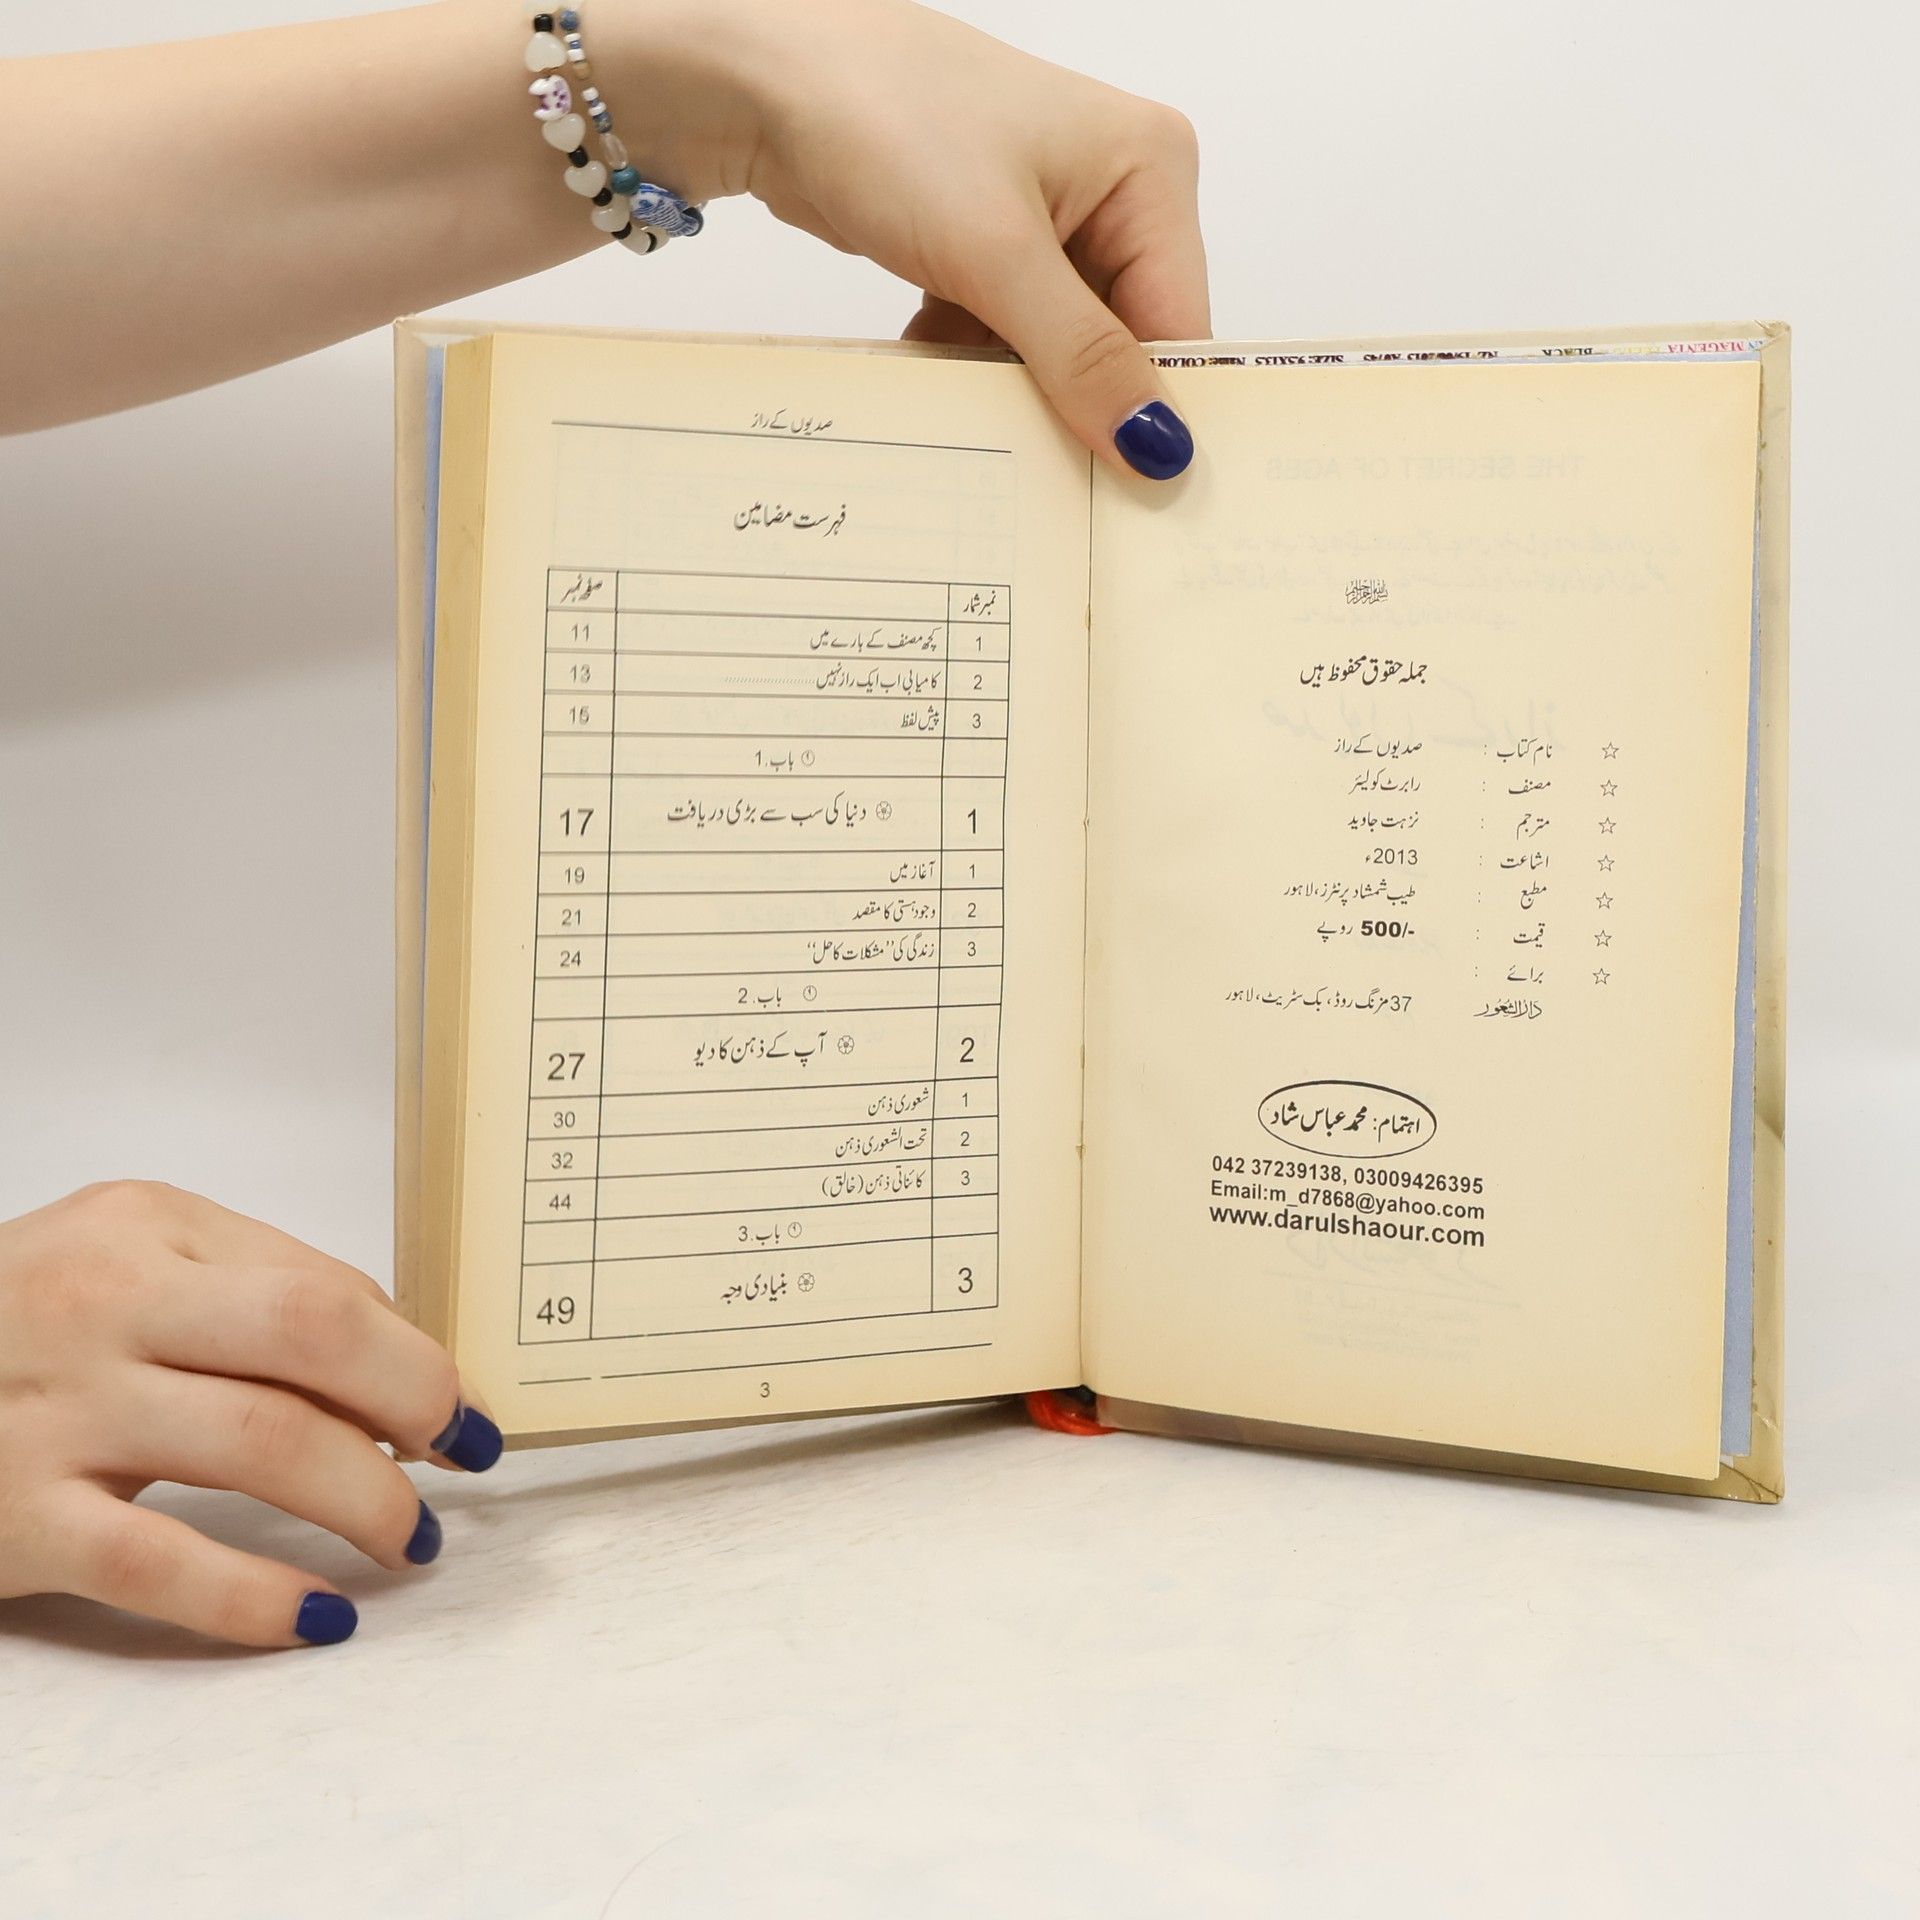 جملہ حقوق محفوظ ہیں
☆ نام کتاب : صدیوں کے راز
☆ مصنف : رابرٹ کولیئر
☆ مترجم : نزہت جاوید
☆ اشاعت : 2013ء
☆ مطبع : طیب شمشاد پرنٹرز، لاہور
☆ قیمت : 500/- روپے
☆ برائے :
دارالشعور 37 مزنگ روڈ، بک سٹریٹ، لاہور
اہتمام: محمد عباس شاد
042 37239138, 03009426395
Email:m_d7868@yahoo.com
www.darulshaour.com
صدیوں کے راز
فہرست مضامین
نمبر شمار صفحہ نمبر
1 کچھ مصنف کے بارے میں 11
2 کامیابی اب ایک راز نہیں........................ 13
3 پیش لفظ 15
باب.1
1 دنیا کی سب سے بڑی دریافت 17
1 آغاز میں 19
2 وجود ہستی کا مقصد 21
3 زندگی کی ’’مشکلات کا حل‘‘ 24
باب.2
2 آپ کے ذہن کا دیو 27
1 شعوری ذہن 30
2 تحت الشعوری ذہن 32
3 کائناتی ذہن (خالق) 44
باب.3
3 بنیادی وجہ 49
3